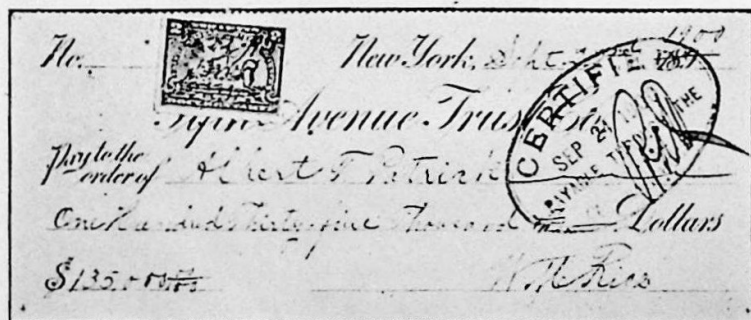 No. New York, Sept 1900
Fifth Avenue Trust Co.
CERTIFIED
SEP 24
PAYABLE THROUGH THE
Pay to the
order of Albert T. Patrick
One Hundred Thirty-five Thousand Dollars
$135.000 00/100 W. M. Rice